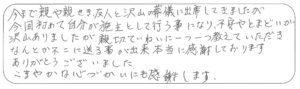 今まで親や親せき、友人と沢山の葬儀に出席してきましたが
今回初めて自分が施主として行う事になり、不安やとまどいが
沢山ありましたが親切でていねいに一つ一つ教えていただき
なんとか無事に送る事が出来本当に感謝しております
ありがとうございました。
こまやかな心づかいにも感謝します。